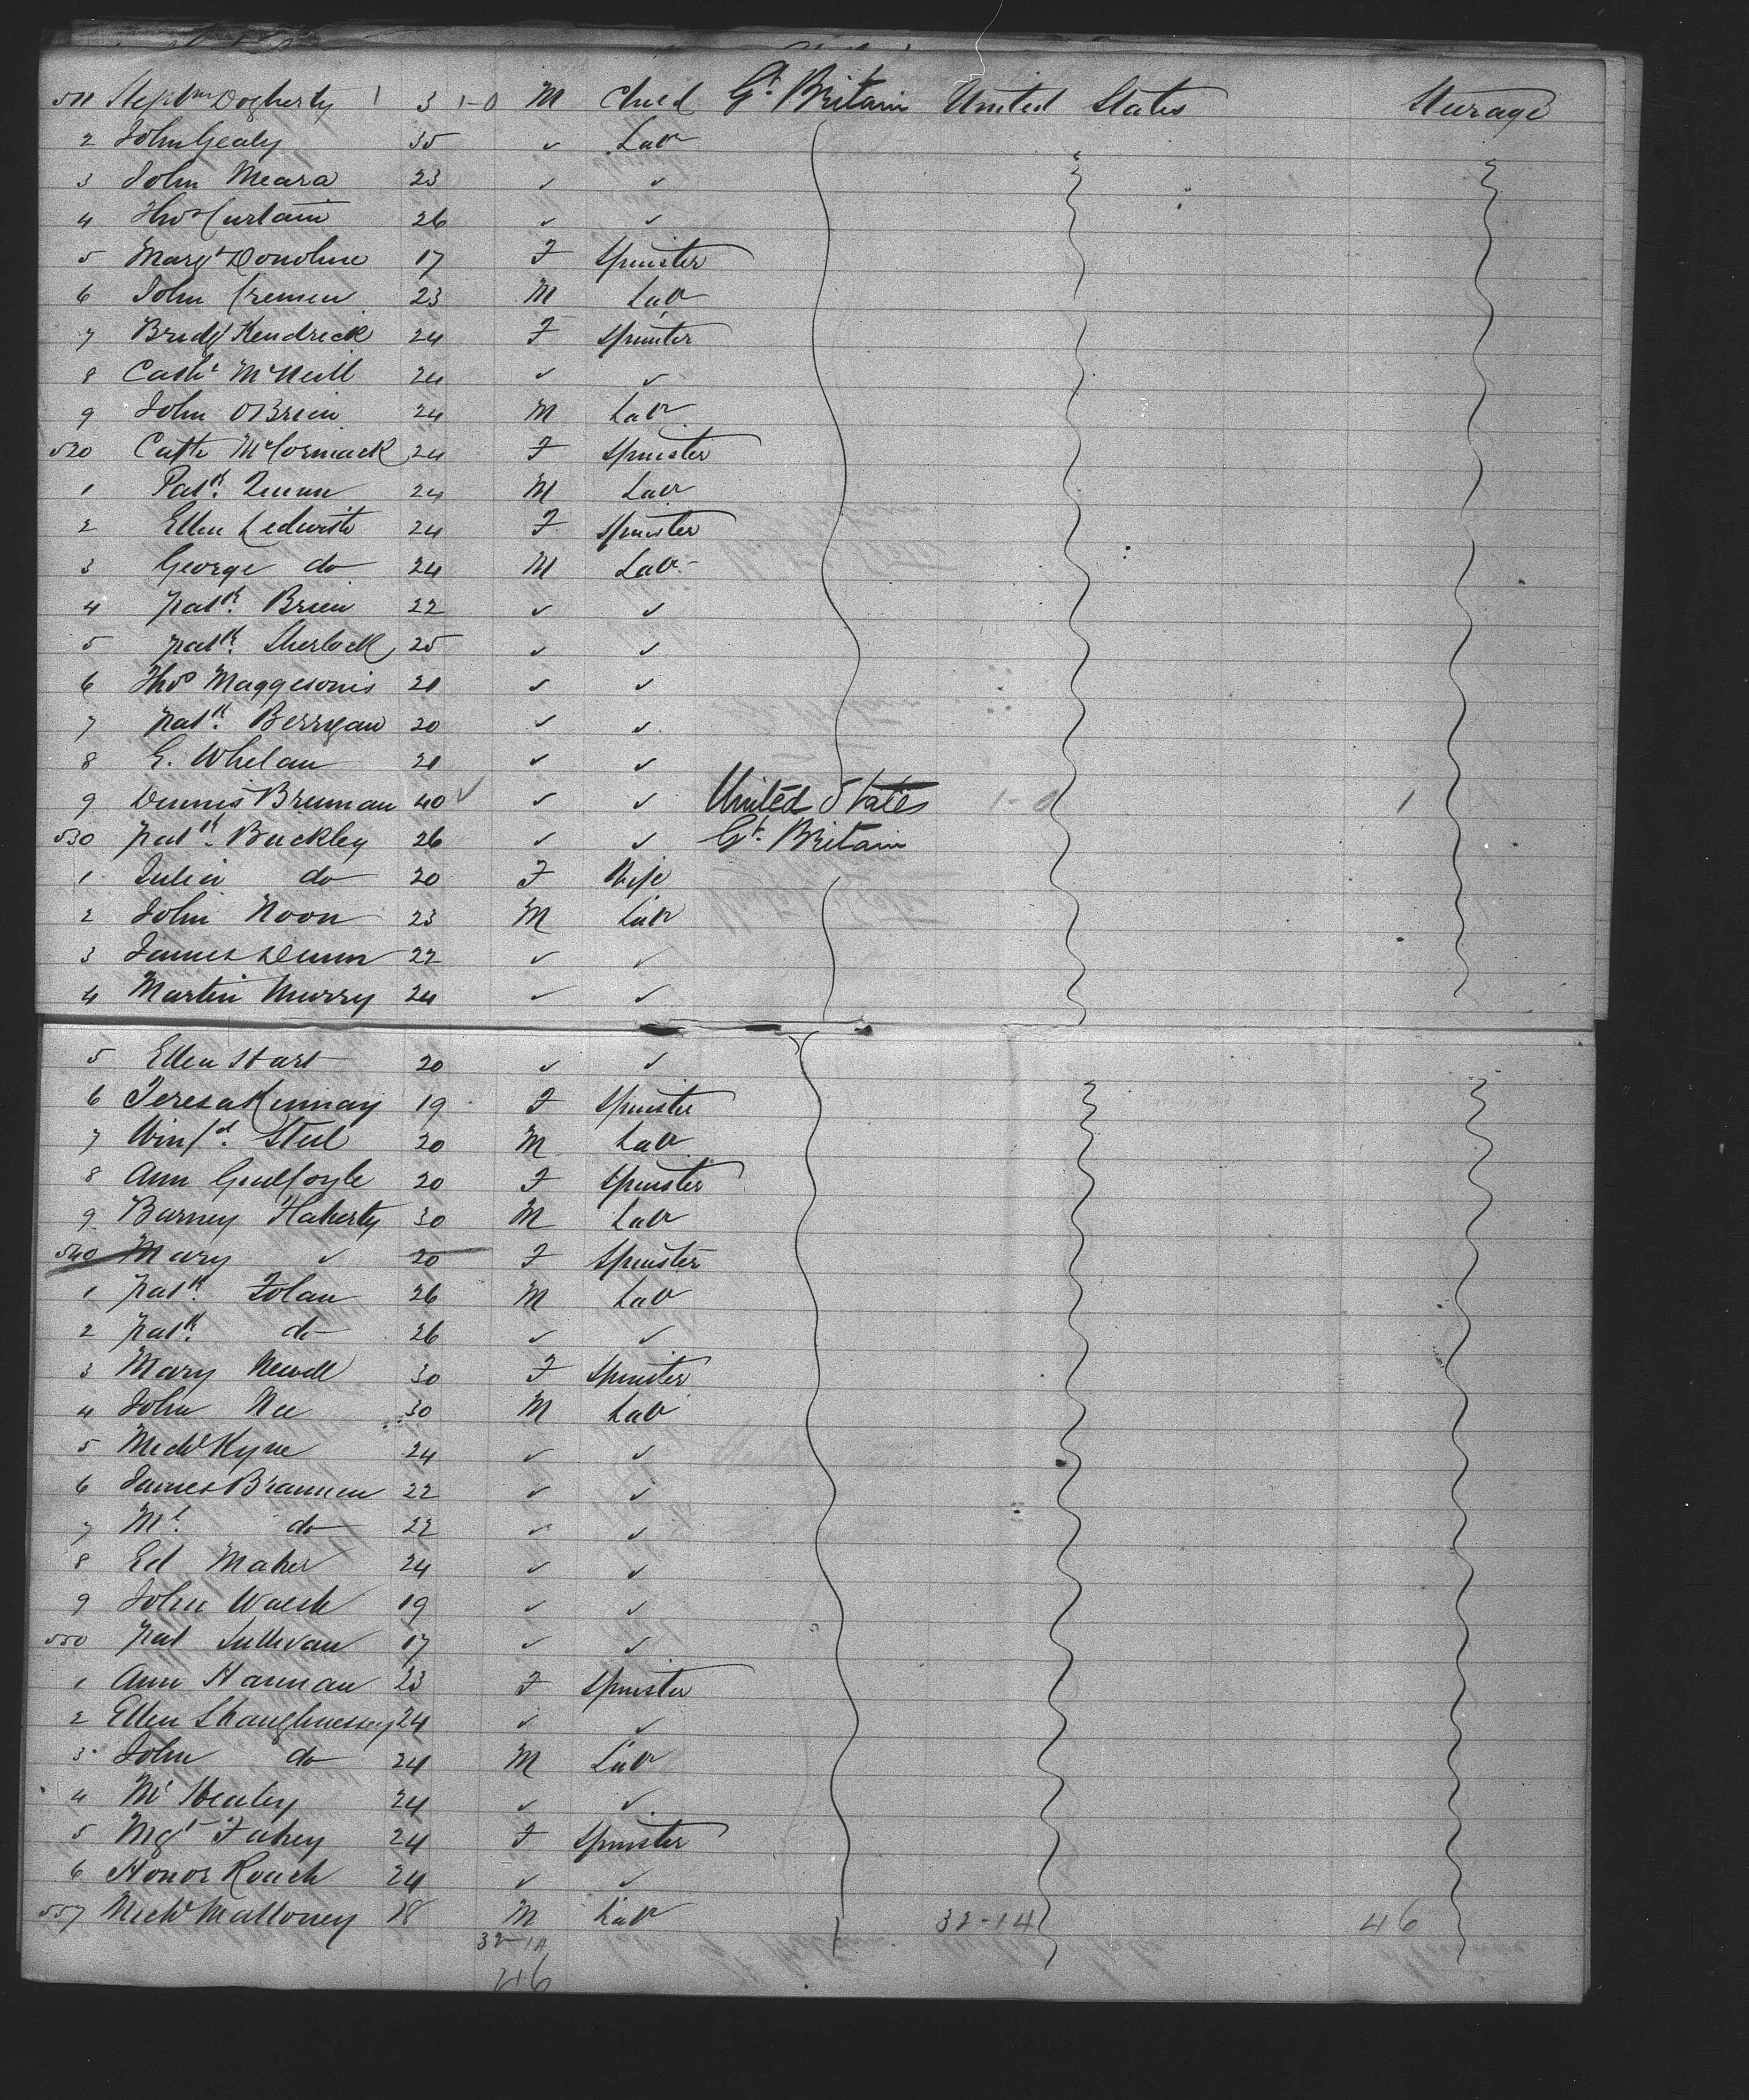 511 Steph Dogherty 1 3 1-0 M Child Gt. Britain United States Steerage
2 John Gealy 35 ✓ Lab
3 John Meara 23 ✓ ✓
4 Thos Curtain 26 ✓ ✓
5 Margt Donohue 17 F Spinster
6 John Cremin 23 M Lab
7 Bridgt Kendrick 24 F Spinster
8 Cathe McNeill 24 ✓ ✓
9 John OBrien 24 M Lab
520 Cathe McCormack 24 F Spinster
1 Patk. Quinn 24 M Lab
2 Ellen Ledwith 24 F Spinster
3 George do 24 M Lab
4 Patk. Brien 22 ✓ ✓
5 Patk. Sherlock 25 ✓ ✓
6 Thos Maggesonis 21 ✓ ✓
7 Patk. Berrigan 20 ✓ ✓
8 E. Whelan 21 ✓ ✓
9 Dennis Brennan 40 ✓ ✓ ✓ United States 1-0 1
530 Patk. Buckley 26 ✓ ✓ Gt. Britain
1 Julia do 20 F Wife
2 John Noon 23 M Lab
3 James Dunn 22 ✓ ✓
4 Martin Murry 24 ✓ ✓
5 Ellen Hart 20 ✓ ✓
6 Teresa Kinnay 19 F Spinster
7 Winfd. Steel 20 M Lab
8 Ann Guilfoyle 20 F Spinster
9 Barney Flaherty 30 M Lab
540 Mary ✓ 20 F Spinster
1 Patk. Folan 26 M Lab
2 Patk. do 26 ✓ ✓
3 Mary Newell 30 F Spinster
4 John Nee 30 M Lab
5 Michl Kyne 24 ✓ ✓
6 James Brannen 22 ✓ ✓
7 Mt. do 22 ✓ ✓
8 Ed Maher 24 ✓ ✓
9 John Walsh 19 ✓ ✓
550 Pat Sullivan 17 ✓ ✓
1 Ann Hannan 23 F Spinster
2 Ellen Shaughnessey 24 ✓ ✓
3 John do 24 M Lab
4 Ml Healey 24 ✓ ✓
5 Mgt Fahey 24 F Spinster
6 Honor Roach 24 ✓ ✓
557 Michl Malloney 28 M Lab 32-14 46
32-14
46